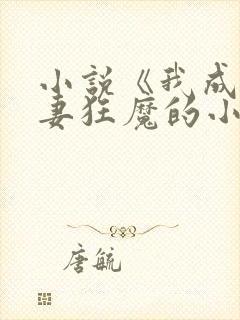 小说《我成
妻狂魔的小
唐毓